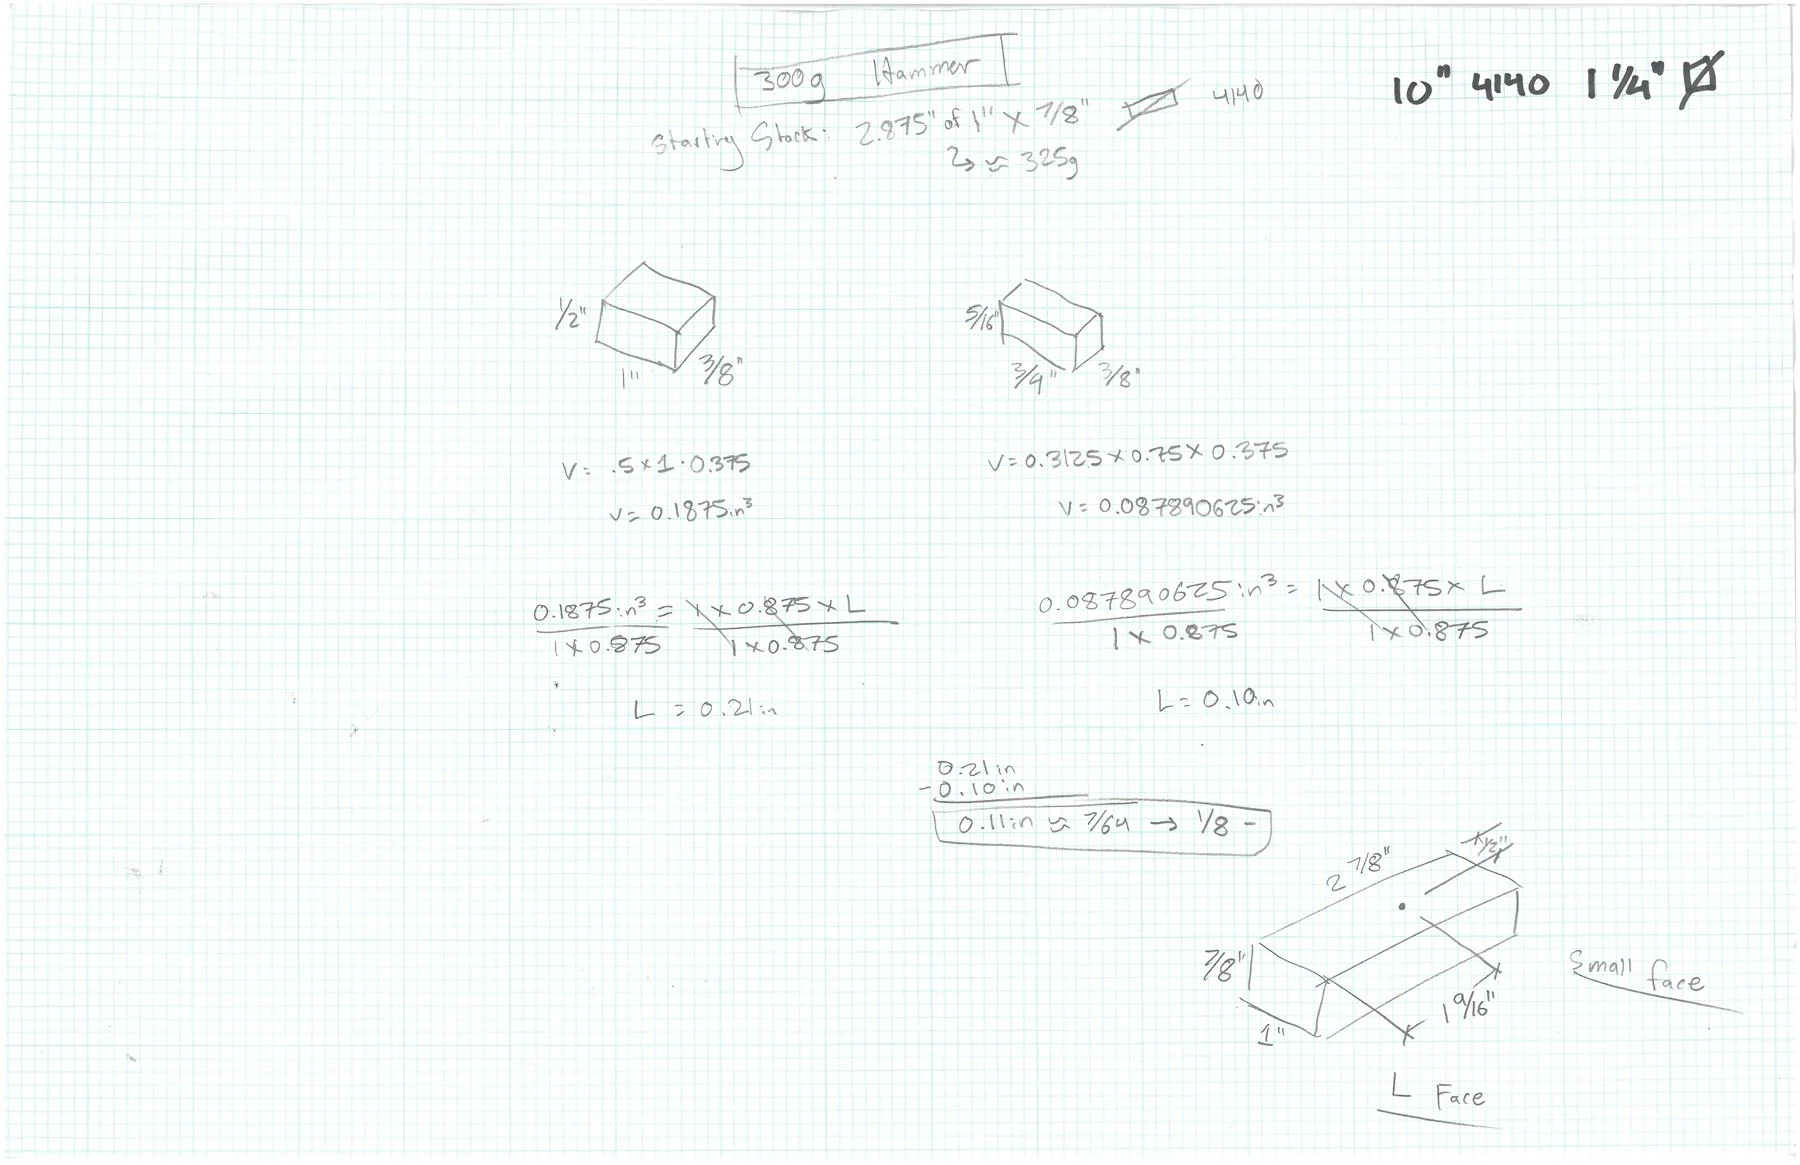 300g Hammer
10" 4140 1 1/4"
Starting Stock: 2.875" of 1" X 7/8" 4140
≈ 325g
1/2"
1"
3/8"
5/16"
3/4"
3/8"
V= .5×1·0.375
V= 0.1875in³
V=0.3125×0.75×0.375
V= 0.087890625in³
0.1875in³ = 1 x 0.875 x L
1x0.875 1x0.875
L = 0.21in
0.087890625in³ = 1x 0.875x L
1 x 0.875 1x0.875
L= 0.10in
0.21in
-0.10in
0.11in ≈ 7/64 → 1/8 -
2 7/8"
1/2"
7/8"
1"
1 9/16"
Small face
L Face